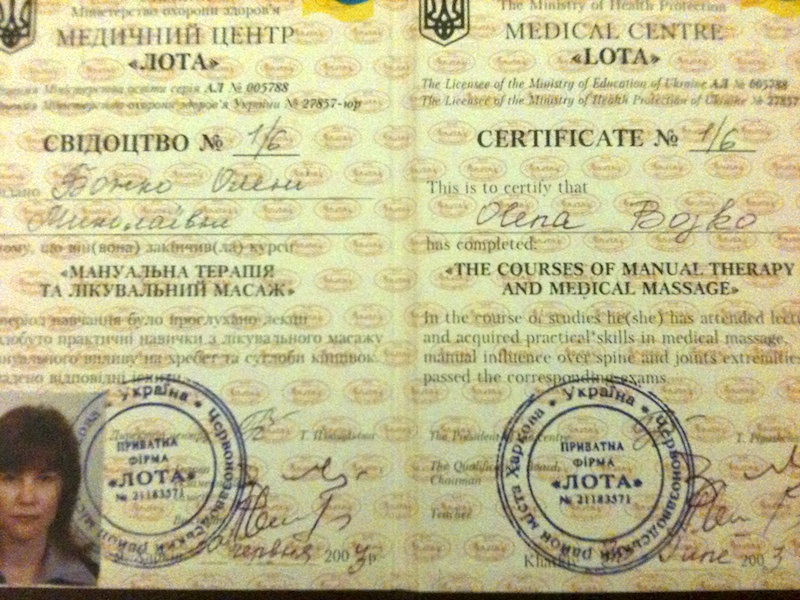 Міністерство охорони здоров'я
МЕДИЧНИЙ ЦЕНТР
«ЛОТА»
Міністерства освіти серія АЛ № 005788
Міністерства охорони здоров'я України № 27857-юр
СВІДОЦТВО № 1/6
Божко Олені
Миколаївні
тому, що він(вона) закінчив(ла) курси
«МАНУАЛЬНА ТЕРАПІЯ
ТА ЛІКУВАЛЬНИЙ МАСАЖ»
період навчання було прослухано лекції
здобуто практичні навички з лікувального масажу
мануального впливу на хребет та суглоби кінцівок
відповідні іспити
Україна
Червонозаводський район
ПРИВАТНА
ФІРМА
«ЛОТА»
№ 21183571
червня 2003р.
The Ministry of Health Protection
MEDICAL CENTRE
«LOTA»
The Licensee of the Ministry of Education of Ukraine АЛ № 005788
The Licensee of the Ministry of Health Protection of Ukraine № 27857
CERTIFICATE № 1/6
This is to certify that
Olena Bojko
has completed:
«THE COURSES OF MANUAL THERAPY
AND MEDICAL MASSAGE»
In the course of studies he(she) has attended lectu
and acquired practical skills in medical massage,
manual influence over spine and joints extremities
passed the corresponding exams.
The President centre
The Qualific Board,
Chairman
Teacher
Україна
Червонозаводський район міста Харкова
ПРИВАТНА
ФІРМА
«ЛОТА»
№ 21183571
Kharkiv June 2003